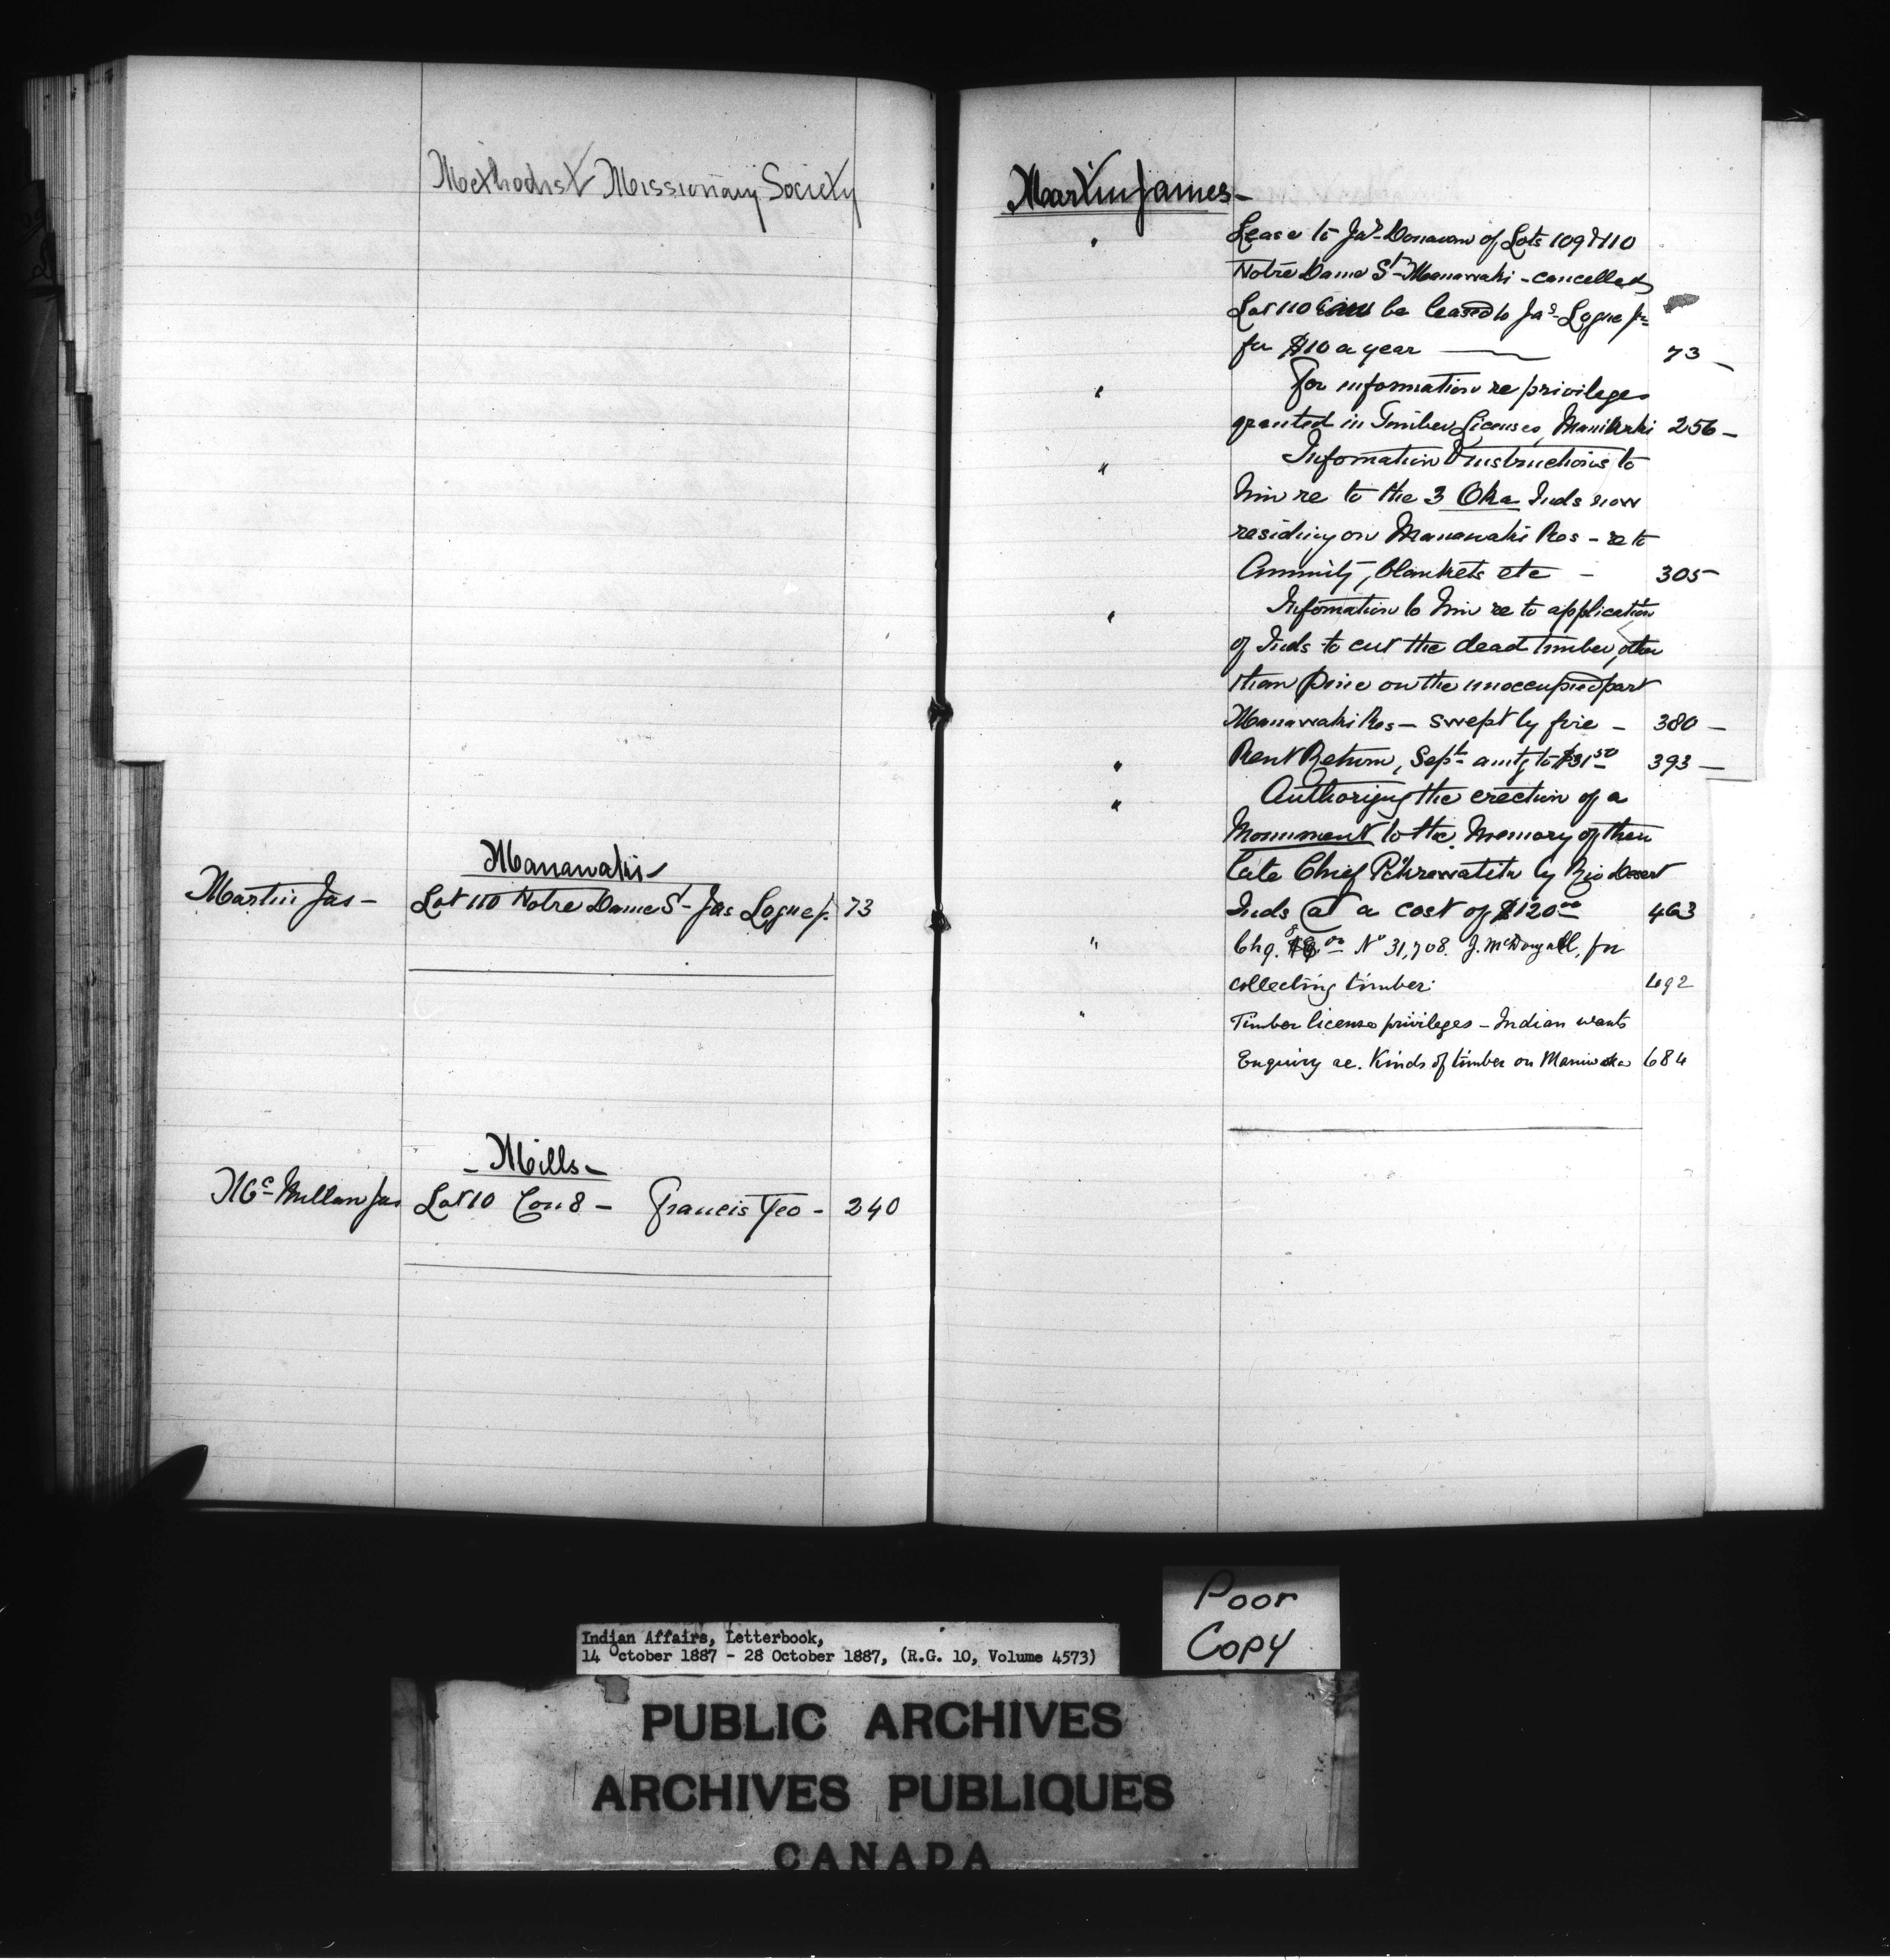 Methodist Missionary Society
Manawaki
Martin Jas - Lot 110 Notre Dame St - Jas Logue Jr. 73
- Mills -
Mc Millan Jas Lot 10 Con 8 - Francis Yeo - 240
Martin James -
" Lease to Jas Donavan of Lots 109 & 110
Notre Dame St Manawaki - cancelled
Lot 110 can be leased to Jas Logue Jr
for $10 a year 73 -
" For information re privileges
granted in Timber Licenses, Maniwaki 256 -
" Information & instructions to
him re to the 3 Oka Inds now
residing on Manawaki Res - re to
Annuity, blankets etc - 305 -
" Information to him re to application
of Inds to cut the dead timber, other
than pine on the unoccupied part
Manawaki Res - swept by fire - 380 -
" Rent Return, Sept amtg to $31 50 393 -
" Authorizing the erection of a
Monument to the memory of their
late Chief by Rio Desert
Inds at a cost of $120 00 463
" Chq. No 31,708. J. McDougall, for
collecting timber. 492
" Timber license privileges - Indian wants
Enquiry re. Kinds of timber on 684
Poor
Copy
Indian Affairs, Letterbook,
14 October 1887 - 28 October 1887, (R.G. 10, Volume 4573)
PUBLIC ARCHIVES
ARCHIVES PUBLIQUES
CANADA